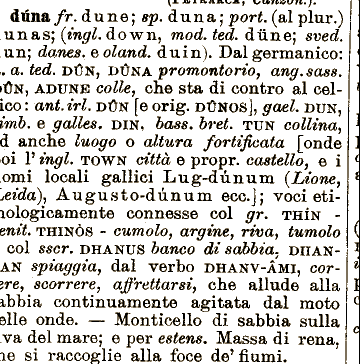 dúna fr. dune; sp. duna; port. (al plur.)
unas; (ingl. down, mod. ted. düne; sved.
un; danes. e oland. duin). Dal germanico:
. a. ted. DÛN, DÛNA promontorio, ang. sass.
DÛN, ADUNE colle, che sta di contro al cel-
ico: ant. irl. DÛN [e orig. DÛNOS], gael. DUN,
imb. e galles. DIN, bass. bret. TUN collina,
d anche luogo o altura fortificata [onde
oi l' ingl. TOWN città e propr. castello, e i
omi locali gallici Lug-dúnum (Lione,
Leida), Augusto-dúnum ecc.]; voci eti-
nologicamente connesse col gr. THÍN -
enit. THINÒS - cumolo, argine, riva, tumolo
col sscr. DHANUS banco di sabbia, DHAN-
AN spiaggia, dal verbo DHANV-ÂMI, cor-
ere, scorrere, affrettarsi, che allude alla
abbia continuamente agitata dal moto
elle onde. — Monticello di sabbia sulla
iva del mare; e per estens. Massa di rena,
he si raccoglie alla foce de' fiumi.